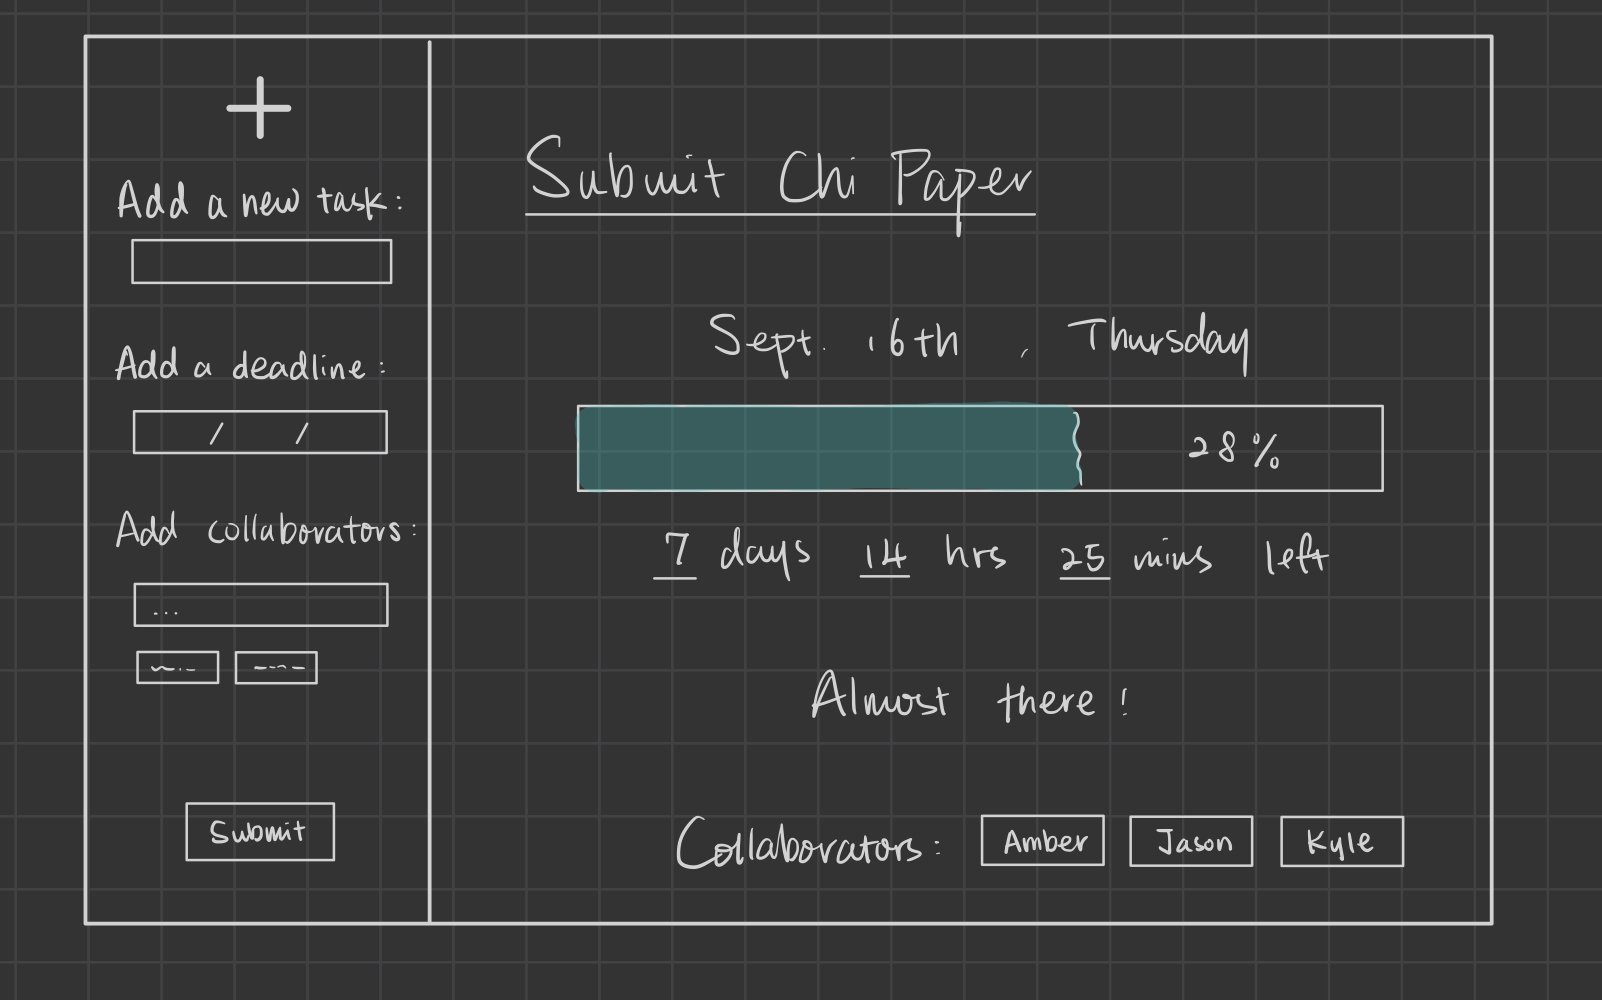 Add a new task:
Add a deadline:
/ /
Add collaborators:
...
Submit
Submit Chi Paper
Sept. 16th , Thursday
28%
7 days 14 hrs 25 mins left
Almost there!
Collaborators: Amber Jason Kyle